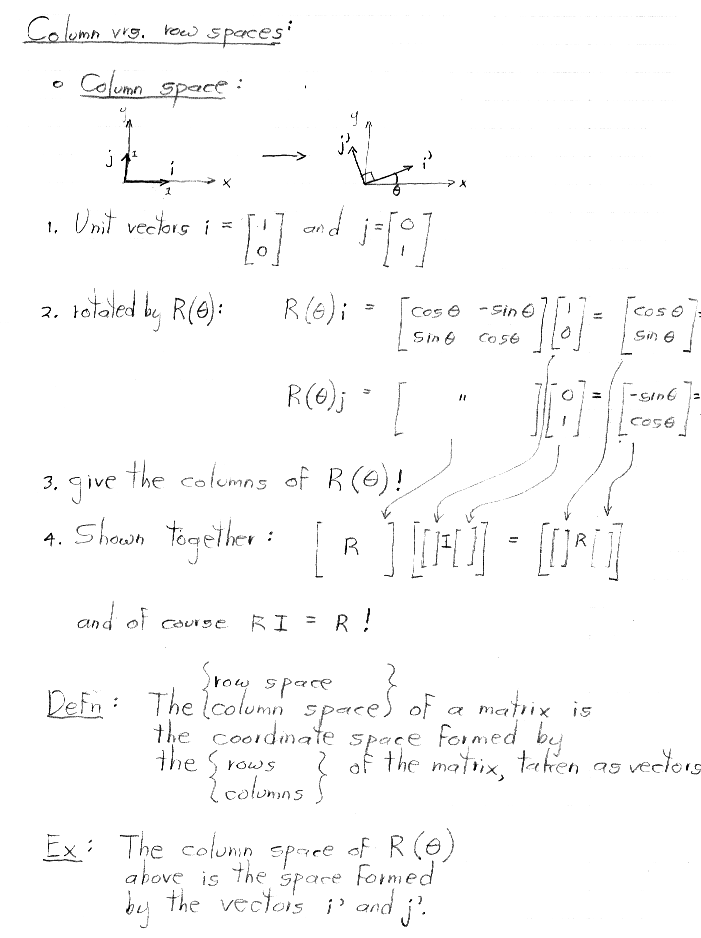 Column vrs. row spaces:
o Column space:
y y
j 1 i j' i'
1 x θ x
1. Unit vectors i = [1 0] and j = [0 1]
2. rotated by R(θ): R(θ)i = [cos θ -sin θ sin θ cos θ] [1 0] = [cos θ sin θ] =
R(θ)j = [ " ] [0 1] = [-sin θ cos θ] =
3. give the columns of R(θ)!
4. Shown together: [ R ] [[ ] I [ ]] = [[ ] R [ ]]
and of course RI = R!
Defn: The {row space column space} of a matrix is
the coordinate space formed by
the {rows columns} of the matrix, taken as vectors
Ex: The column space of R(θ)
above is the space formed
by the vectors i' and j'.